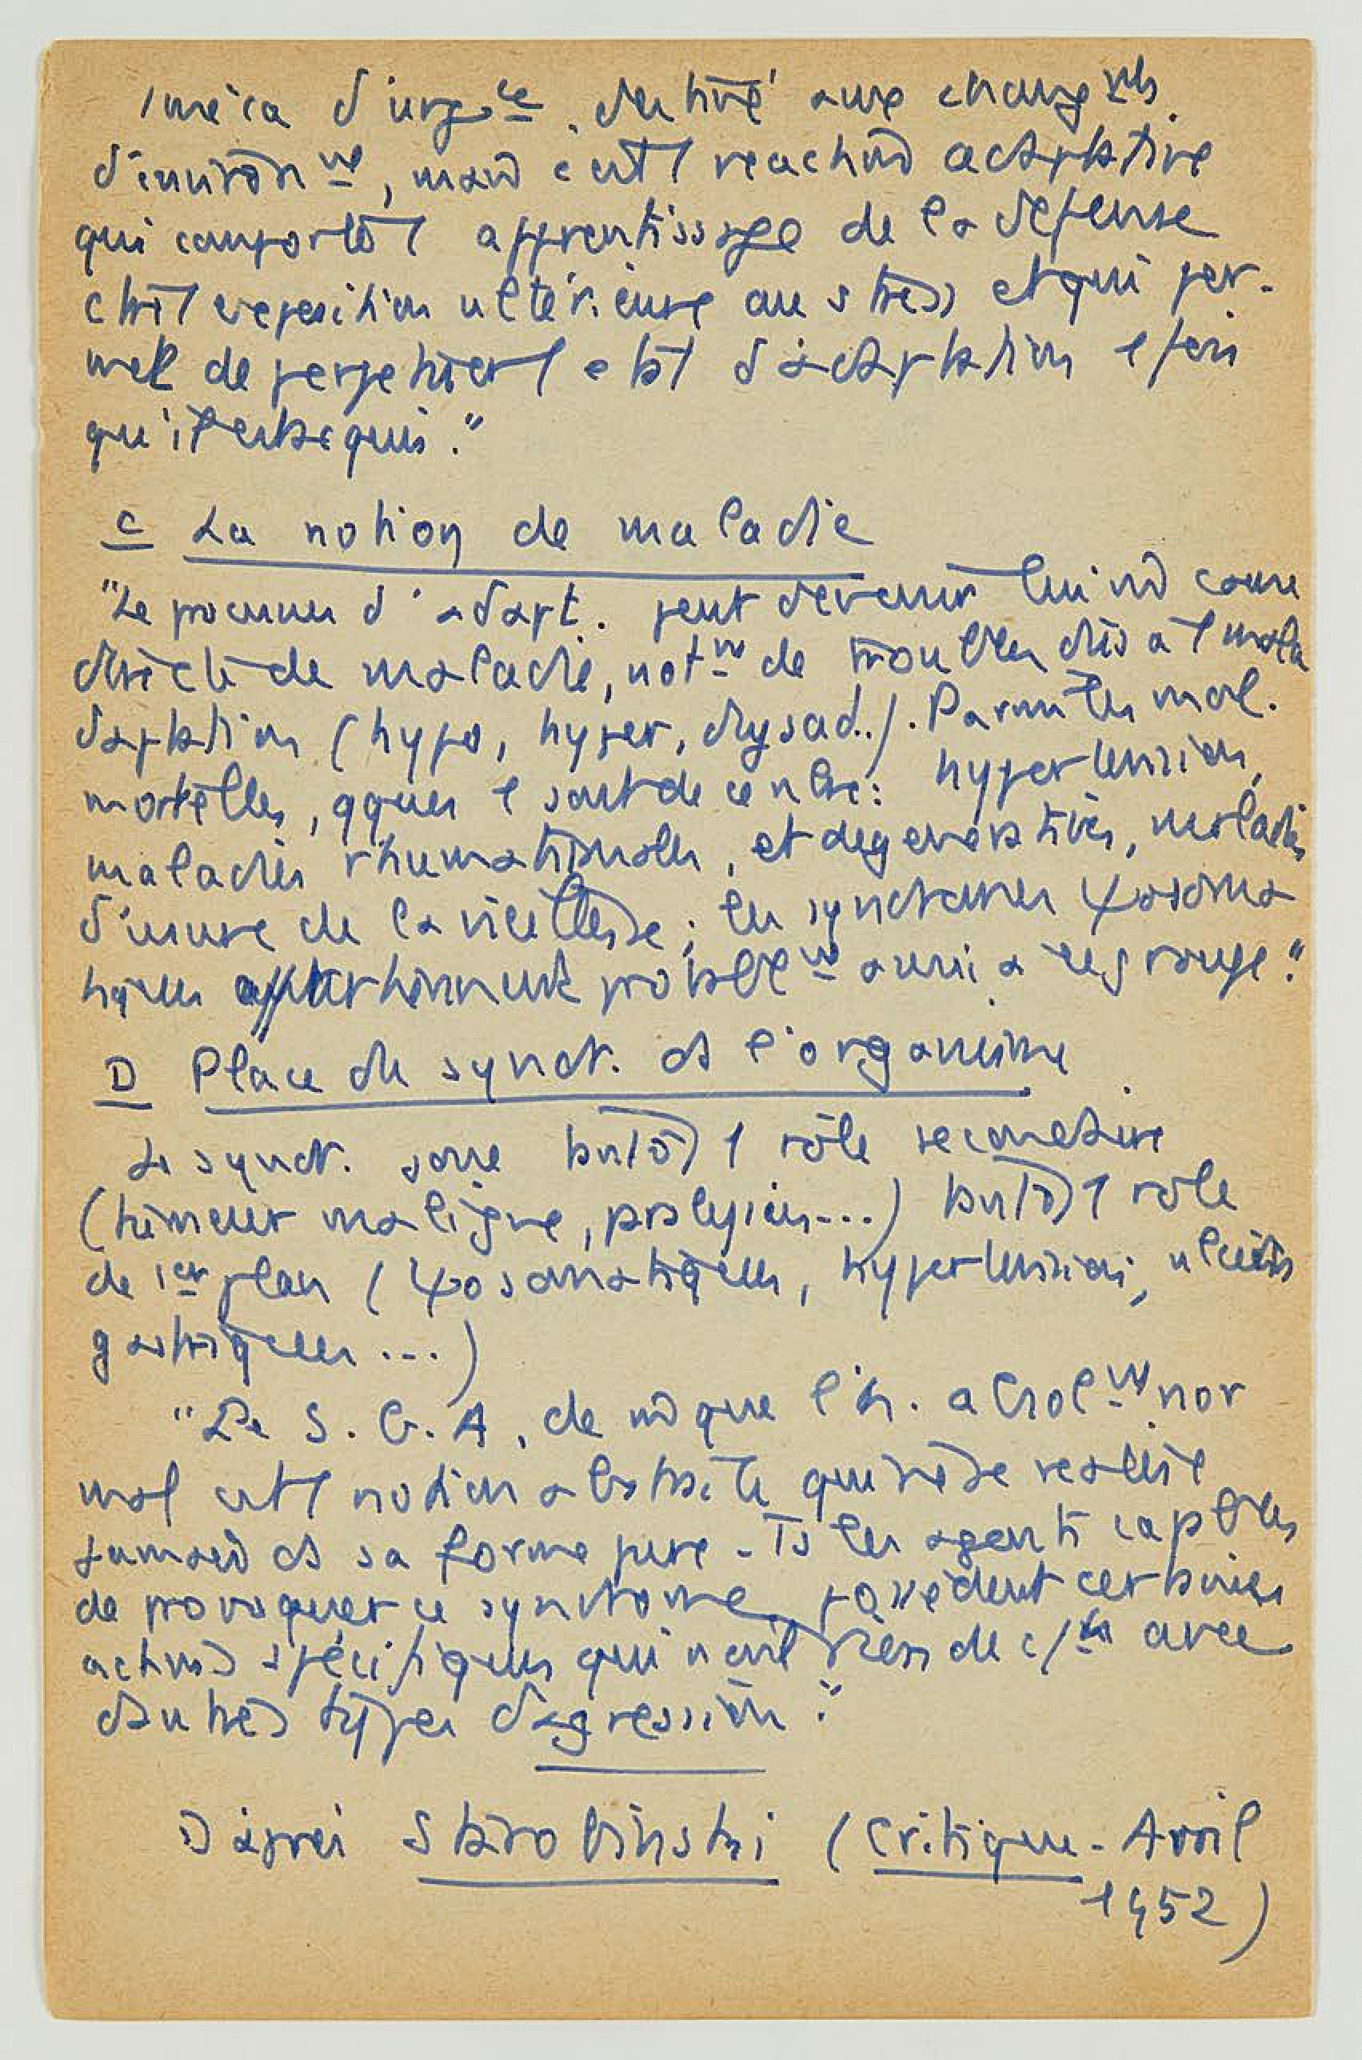 1 méca d'urg<sup>ce</sup>, destiné aux chang<sup>nts</sup>
d'environ<sup>nt</sup>, mais c'est 1 réaction adaptative
qui comporte 1 apprentissage de la défense
ctre 1 exposition ultérieure au stress et qui per-
met de perpétuer 1 état d'adaptation 1 fois
qu'il est acquis."
C La notion de maladie
"Le processus d'adapt. peut devenir lui m̂ cause
directe de maladie, not<sup>nt</sup> de troubles dûs à 1 mala
daptation (hypo, hyper, dysad..). Parmi les mal.
mortelles, qques 1 sont de ce : hypertension,
maladies rhumatismales, et dégénératives, maladies
d'usure de la vieillesse ; les syndromes ψosoma
tiques appartiennent probable<sup>nt</sup> aussi à ce groupe."
D Place du synd. ds l'organisme
Le synd. joue tantôt 1 rôle secondaire
(tumeur maligne, ) tantôt 1 rôle
de 1<sup>er</sup> plan (ψosomatiques, hypertension, ulcères
gastriques...)
"Le S. G. A. de m̂ que l'h. absol<sup>nt</sup> nor
mal est 1 notion abstraite qui ne se réalise
jamais ds sa forme pure. Ts les agents capables
de provoquer ce syndrome possèdent certaines
actions spécifiques qui n'ont rien de c/<sup>un</sup> avec
d'autres types d'agression."
D'après Starobinski (Critique - Avril
1952)